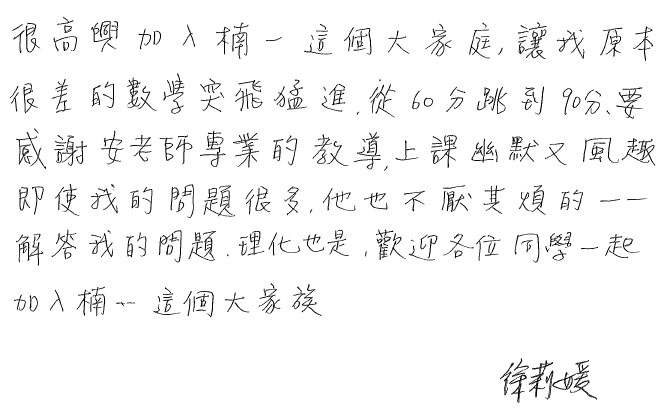 很高興加入楠一這個大家庭,讓我原本
很差的數學突飛猛進.從60分跳到90分、要
感謝安老師專業的教導,上課幽默又風趣
即使我的問題很多.他也不厭其煩的一一
解答我的問題.理化也是,歡迎各位同學一起
加入楠一這個大家族
徐莉媛